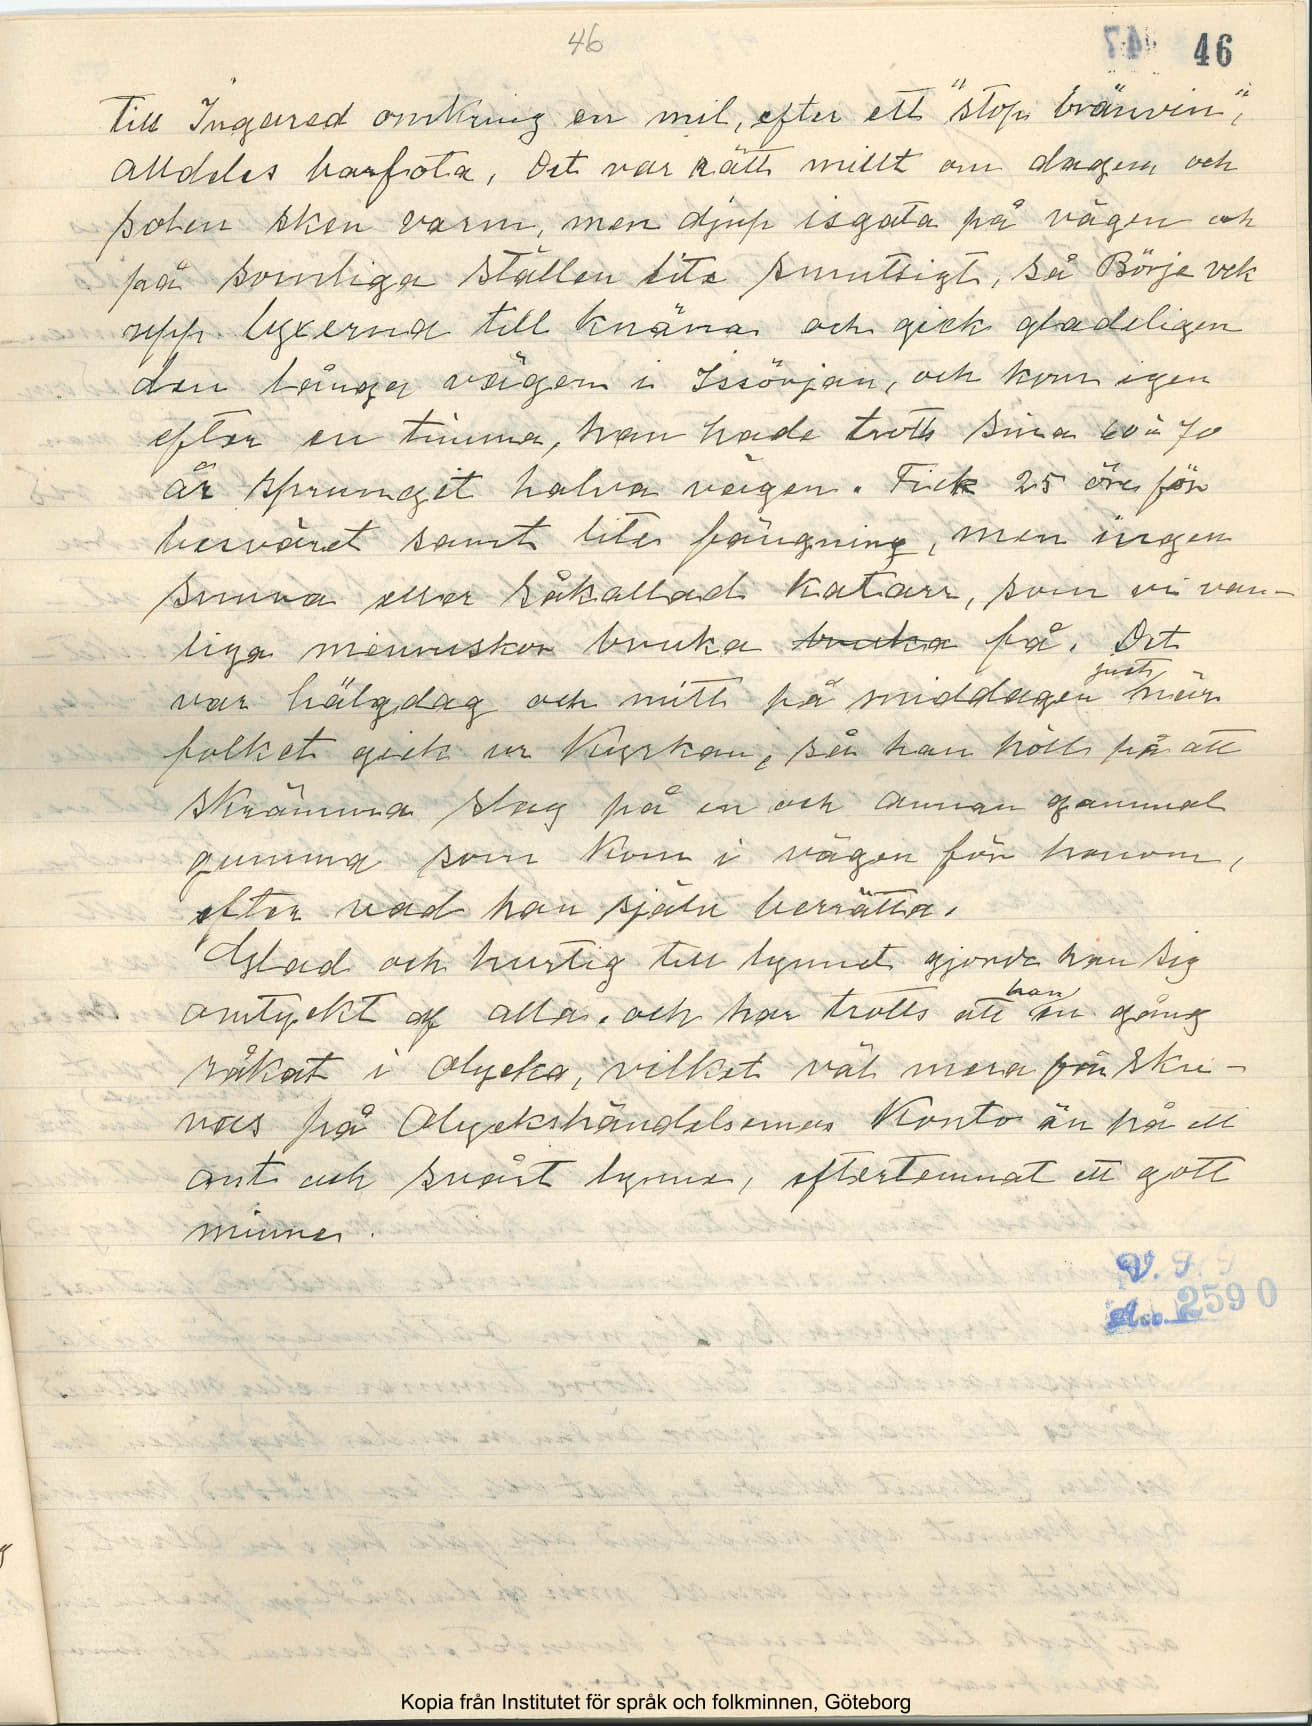 46
47 46
till Ingared omkring en mil, efter ett "stop bränvin",
alldeles barfota, Det var rätt millt om dagen och
solen sken varm, men djup isgata på vägen och
på somliga ställen lite smuttsigt, så Börje vek
upp byxerna till knäna och gick gladeligen
den långa vägen i Issörjan, och kom igen
efter en timma, han hade trotts sina 60 à 70
år sprungit halva vägen. Fick 25 öre för
besväret samt lite fängning, men ingen
snuva eller såkallad katarr, som vi van-
liga menniskor bruka bruka få. Det
var hälgdag och mitt på middagen just när
folket gick ur Kyrkan, så han höll på att
skrämma slag på en och annan gammal
gumma som kom i vägen för honom,
efter vad han själv berrätta.
Glad och hurtig till lynnet gjorde han sig
omtyckt af alla. och har trotts att han en gång
råkat i olycka, vilket väl mera får skri-
vas på Olyckshändelsernas Konto än på ett
ont och svårt lynne, efterlemnat ett gott
minne.
V. F. F
Acc. 2590
Kopia från Institutet för språk och folkminnen, Göteborg